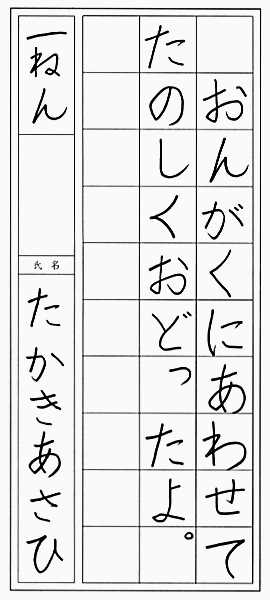 おんがくにあわせて
たのしくおどったよ。
一ねん
氏名
たかきあさひ